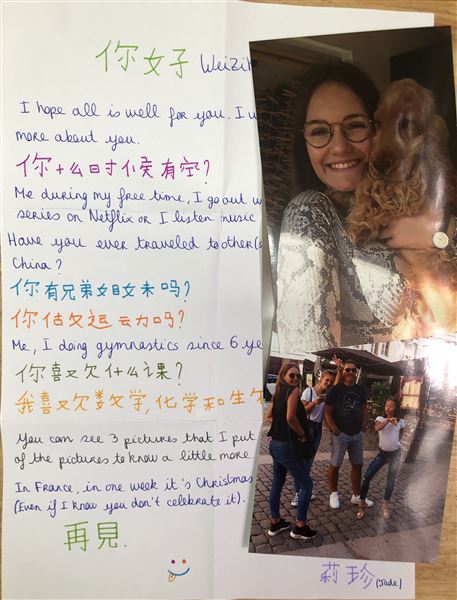 你好
I hope all is well for you. I
more about you.
你什么时候有空?
Me during my free time, I go out
series on Netflix or I listen music
Have you ever traveled to other
China?
你有兄弟姐妹吗?
你做运动吗?
Me, I doing gymnastics since 6
你喜欢什么课?
我喜欢数学,化学和生
You can see 3 pictures that I put
of the pictures to know a little more
In France, in one week it's Christmas
(Even if I know you don't celebrate it).
再見.
莉珍 (Jade)